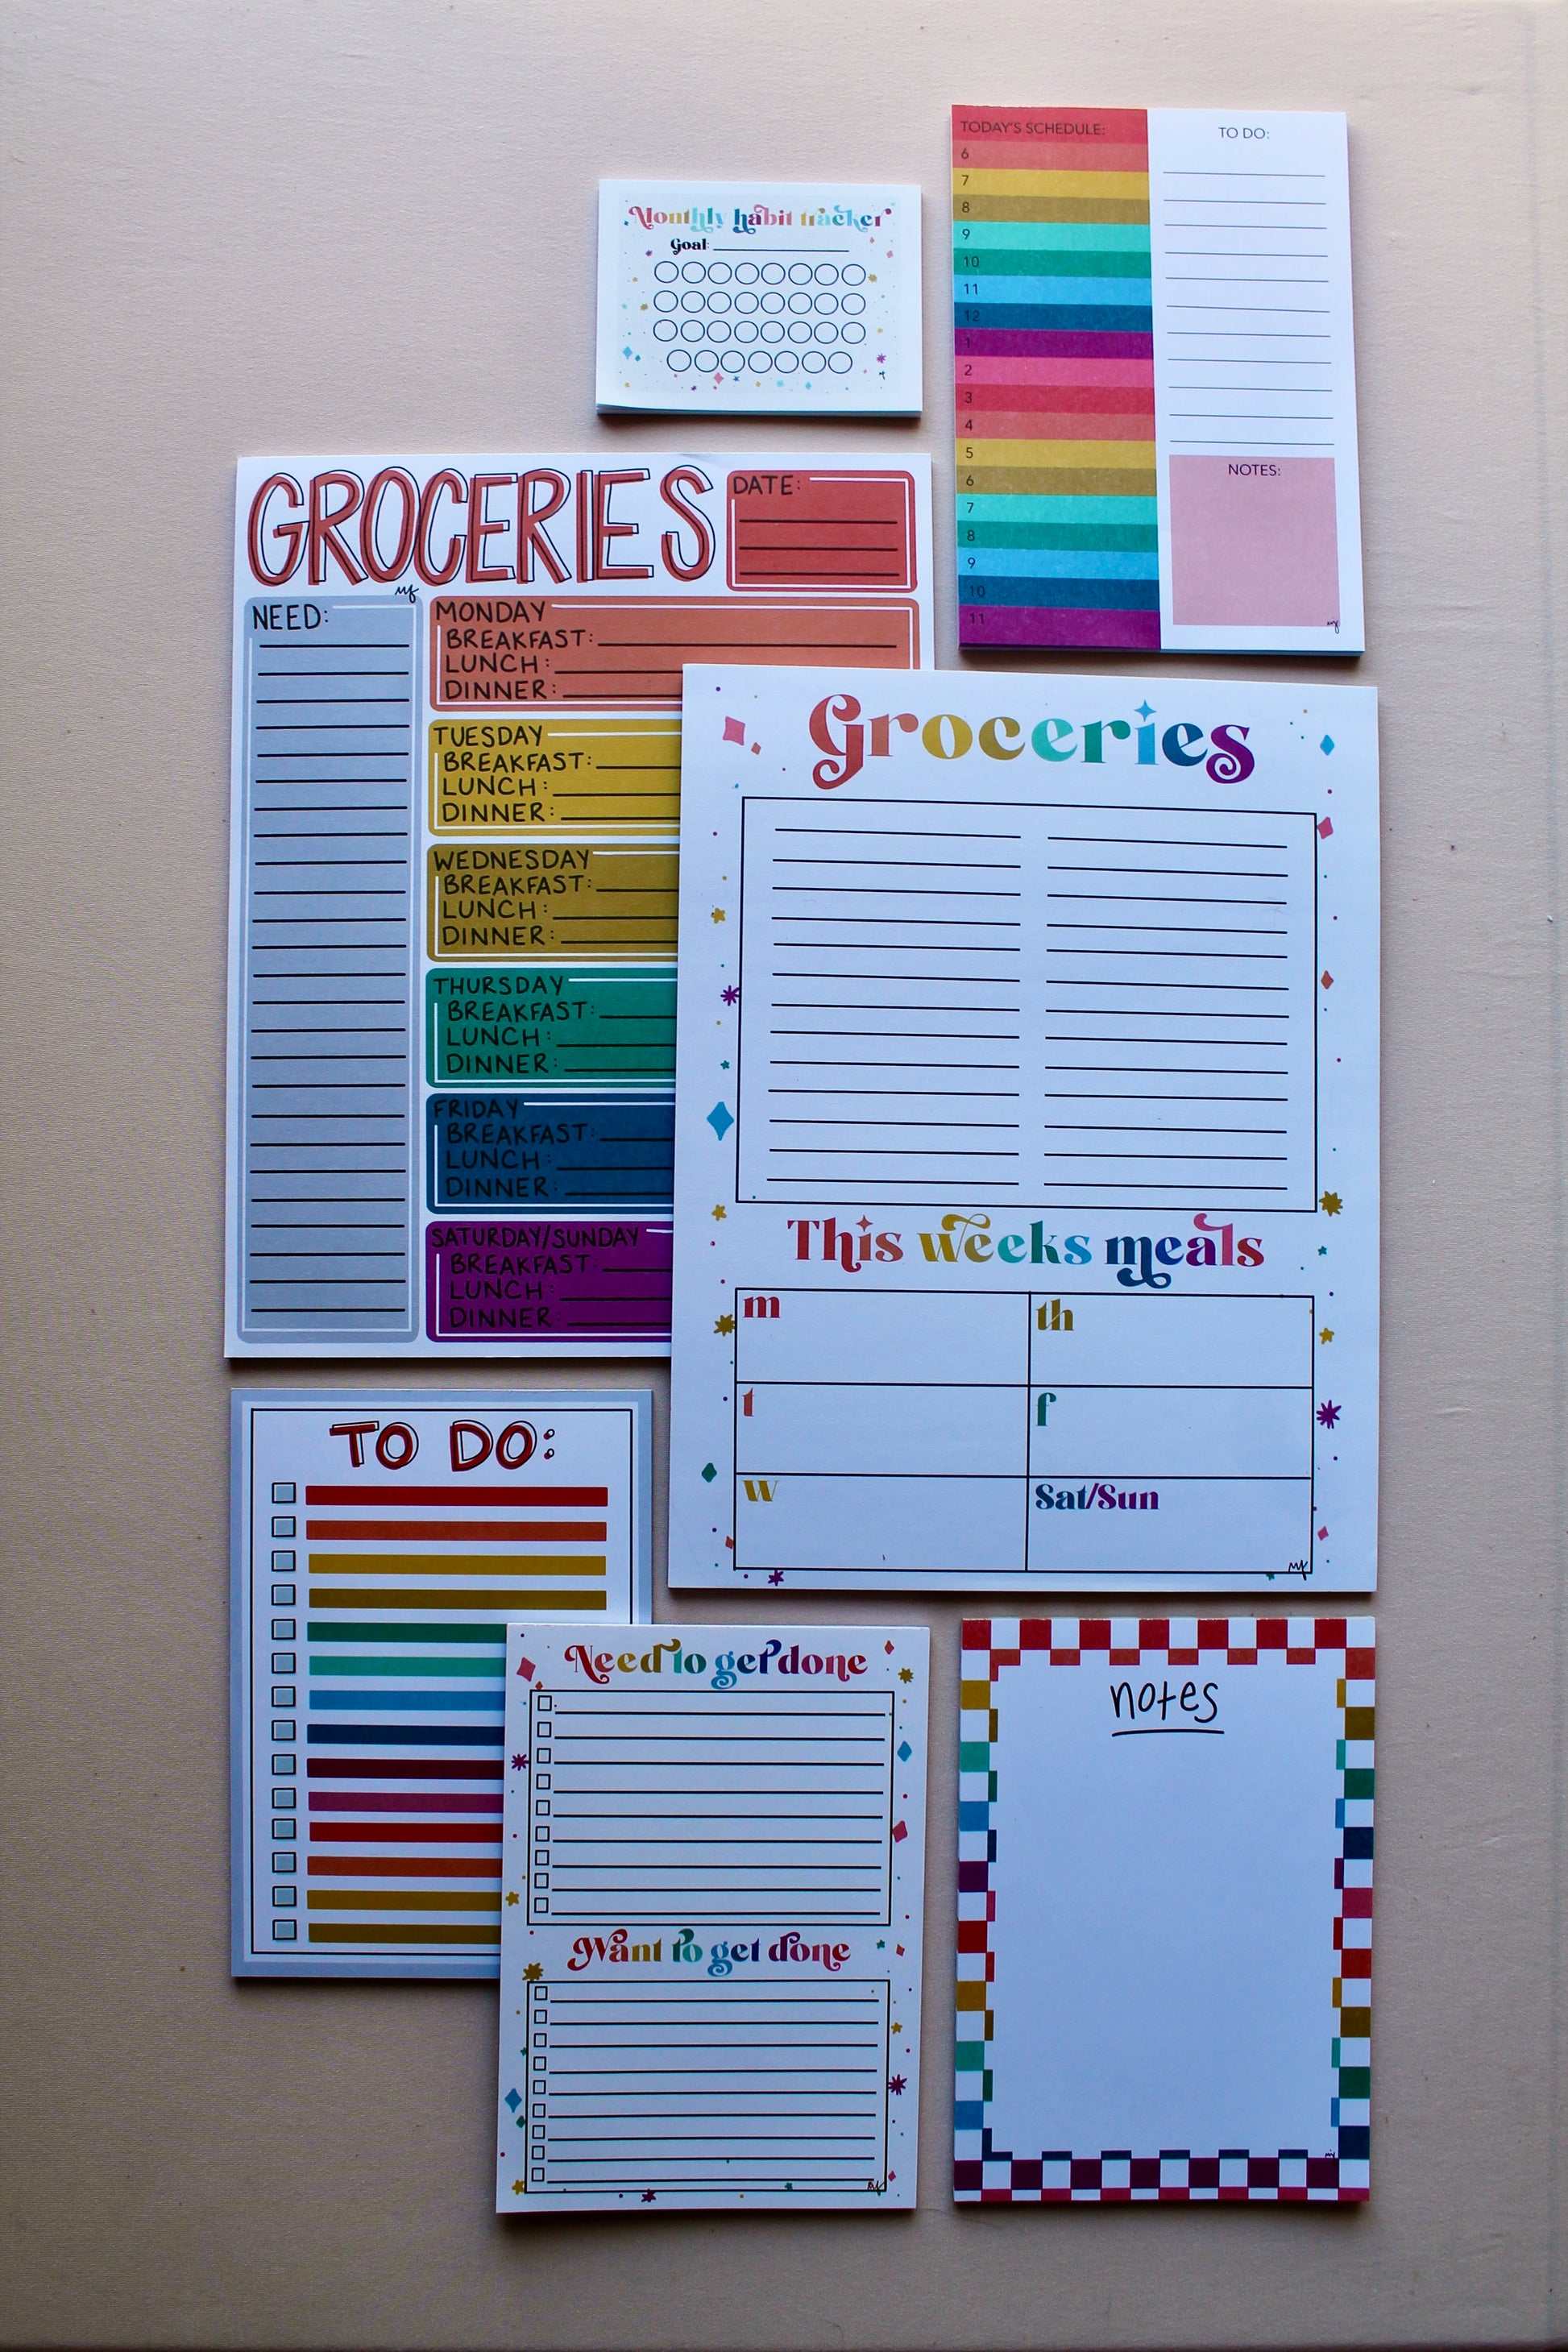 Monthly habit tracker
Goal:
TODAY'S SCHEDULE:
6
7
8
9
10
11
12
1
2
3
4
5
6
7
8
9
10
11
TO DO:
NOTES:
GROCERIES
DATE:
NEED:
MONDAY
BREAKFAST:
LUNCH:
DINNER:
TUESDAY
BREAKFAST:
LUNCH:
DINNER:
WEDNESDAY
BREAKFAST:
LUNCH:
DINNER:
THURSDAY
BREAKFAST:
LUNCH:
DINNER:
FRIDAY
BREAKFAST:
LUNCH:
DINNER:
SATURDAY/SUNDAY
BREAKFAST:
LUNCH:
DINNER:
Groceries
This weeks meals
m
th
t
f
w
Sat/Sun
TO DO:
Need to get done
Want to get done
notes